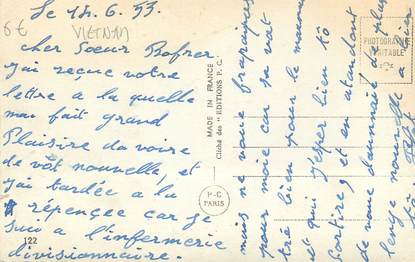 Le 14.6.53
6€ VIETNAM
cher Soeur Bofrer
j'ai reçue votre
lettre a la quelle
mai fait grand
Plaisire da voire
de vot nouvelle, et
j'ai tardée a lu
répençee car je
sui a l'infermerie
divisionnaire.
122
MADE IN FRANCE
Cliché des "EDITIONS P. C."
P-C
PARIS
PHOTOGRAPHIE
VERITABLE
mais ne vous frapais
pour moie car sa vat
tré bien pour le mom
et qui j'esper bien tô
Sortire, et en atandant
de vous dannaié de plus
lenge nouvelle a bien